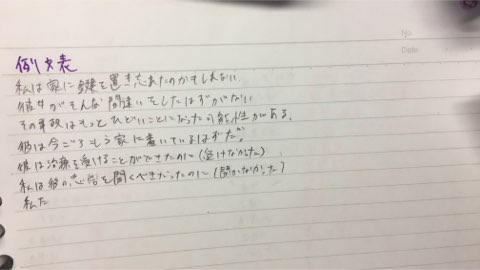 例文表
No.
Date
私は家に鍵を置き忘れたのかもしれない.
彼女がそんな間違いをしたはずがない.
その事故はもっとひどいことになった可能性がある.
彼は今ごろもう家に着いているはずだ.
彼は治療を受けることができたのに(受けなかった)
私は彼の忠告を聞くべきだったのに(聞かなかった)
私た